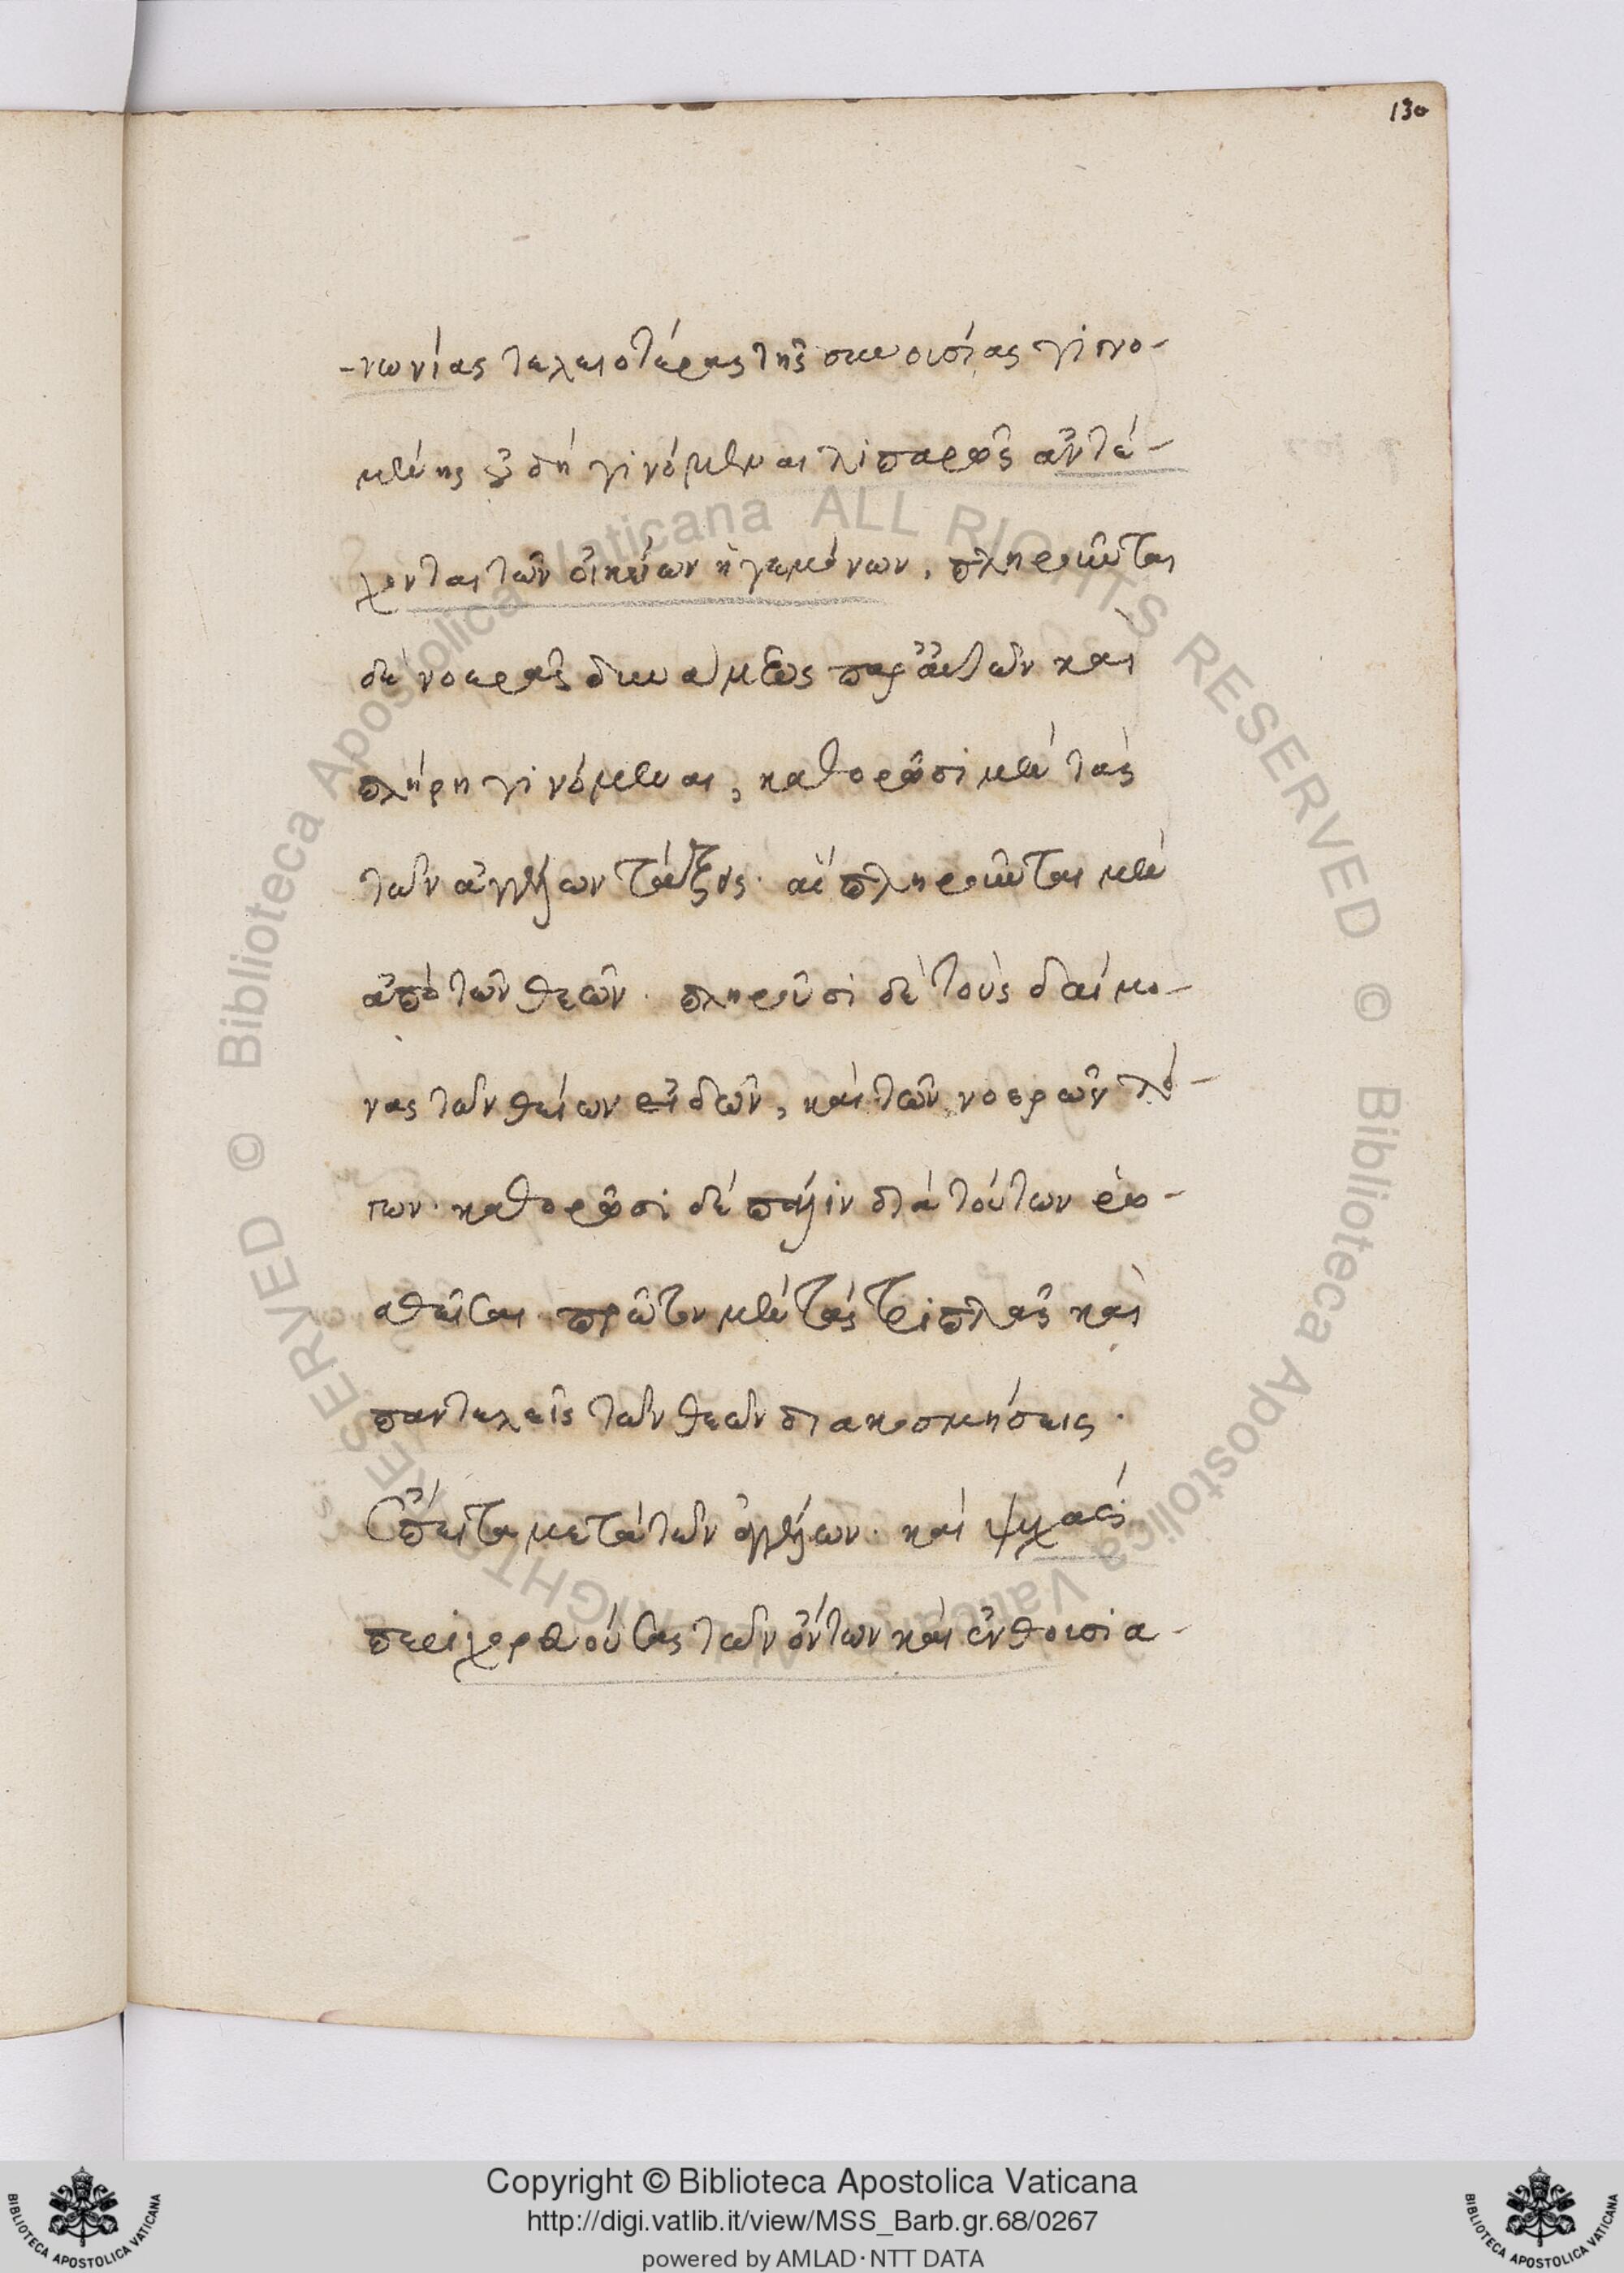 130
-νωνίας τελειοτέρας τῆς συνουσίας γινο-
μένης οὗ δή γινόμεναι λιπαρῶς ἀντέ-
χονται τῶν οἰκείων ἡγεμόνων, πληροῦνται
δέ νοερᾶς δυνάμεως παρ' αὐτῶν καὶ
πλήρη γινόμεναι, καθορῶσι μέν τάς
τῶν ἀγγέλων τάξεις· αἵ πληροῦνται μέν
ἀπό τῶν θεῶν. πληροῦσι δὲ τοὺς δαίμο-
νας τῶν θείων εἰδῶν, καὶ τῶν νοερῶν τό-
πων· καθορῶσι δέ πάλιν διά τούτων
πρῶτον μέν τάς τριπλᾶς καὶ
παντελεῖς τῶν θεῶν διακοσμήσεις·
Ἔπειτα μετά τῶν ἀγγέλων· καί ψυχάς
περιχορευούσας τῶν ὄντων καί ἐνθουσια-
Copyright © Biblioteca Apostolica Vaticana
http://digi.vatlib.it/view/MSS_Barb.gr.68/0267
powered by AMLAD·NTT DATA
BIBLIOTECA APOSTOLICA VATICANA
BIBLIOTECA APOSTOLICA VATICANA
© Biblioteca Apostolica Vaticana ALL RIGHTS RESERVED © Biblioteca Apostolica Vaticana ALL RIGHTS RESERVED